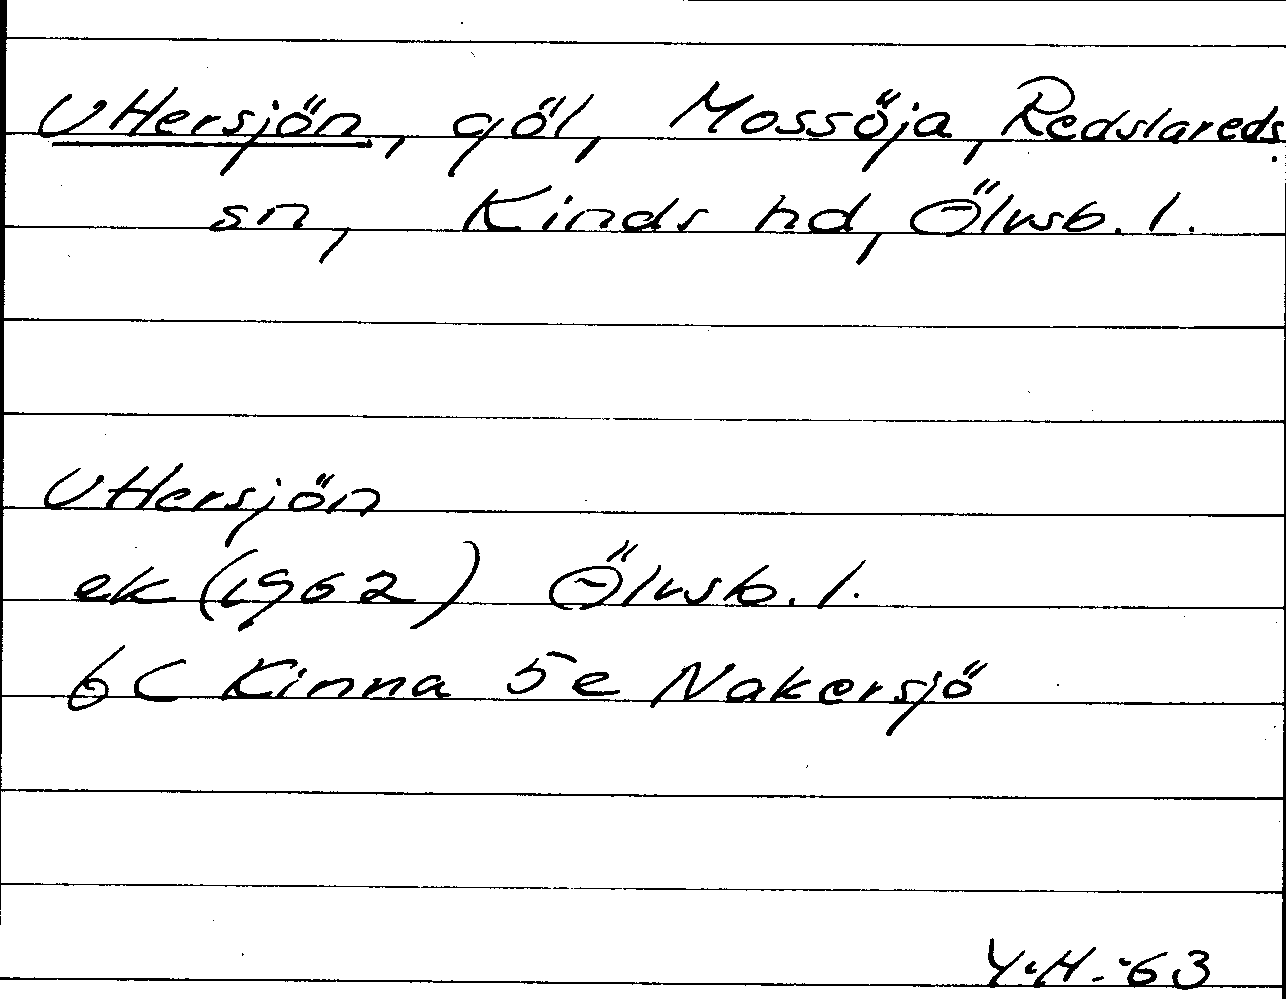 Uttersjön, göl, Mossöja, Redslareds
sn, Kinds hd, Älvsb. l.
Uttersjön
ek (1962) Älvsb. l.
6C Kinna 5e Nakersjö
Y.H.-63